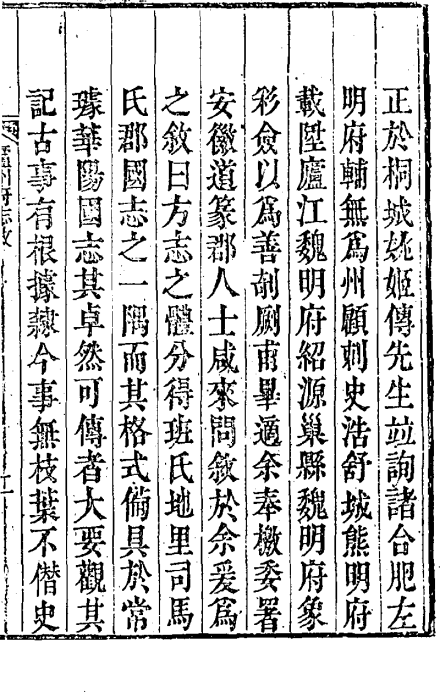 正於桐城姚姬傳先生竝詢諸合肥左
明府輔無爲州顧刺史浩舒城熊明府
載陞廬江魏明府紹源巢縣魏明府象
彩僉以爲善剞劂甫畢適余奉檄委署
安徽道篆郡人士咸來問敘於余爰爲
之敘曰方志之體分得班氏地里司馬
氏郡國志之一隅而其格式備具於常
璩華陽國志其卓然可傳者大要觀其
記古事有根據隸今事無枝葉不僭史